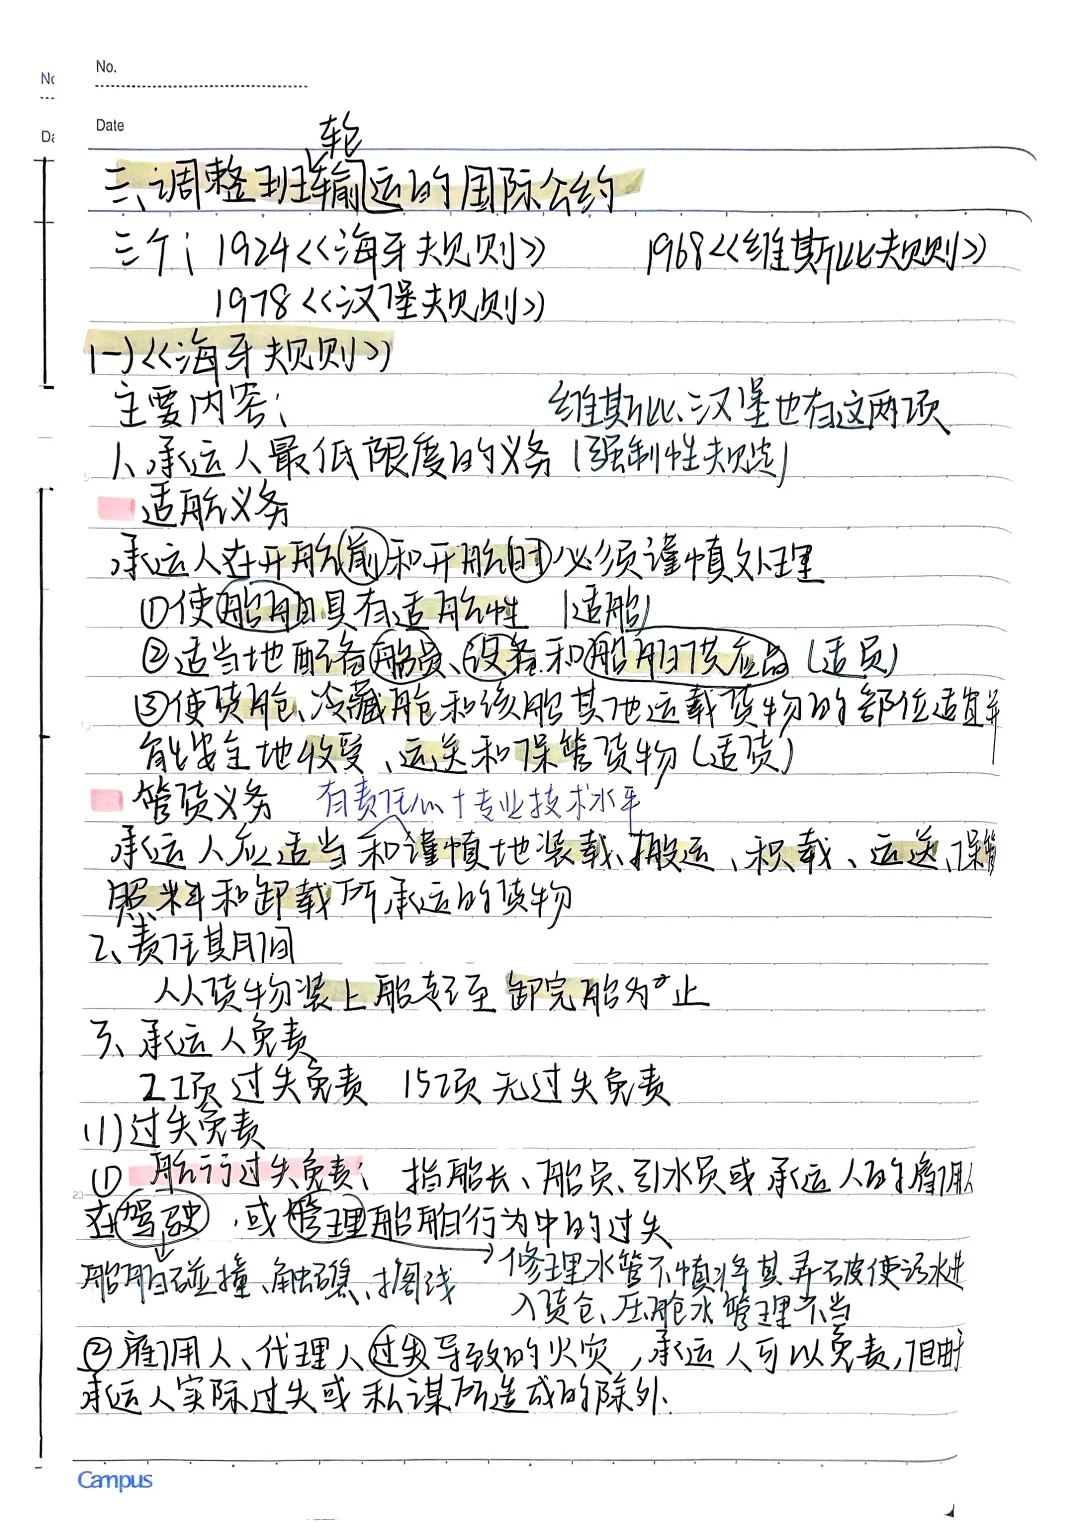 No.
No
Date
Da
轮
三、调整班输运的国际公约
三个; 1924<<海牙规则>> 1968<<维斯比规则>>
1978<<汉堡规则>>
(一)<<海牙规则>>
主要内容; 维斯比、汉堡也有这两项
1、承运人最低限度的义务 (强制性规定)
适航义务
承运人在开船前和开船时必须谨慎处理
①使船舶具有适航性 (适船)
②适当地配备船员、设备和船舶供应品 (适员)
③使货舱、冷藏舱和该船其他运载货物的部位适宜并
能安全地收受、运送和保管货物(适货)
管货义务 有责任心+专业技术水平
承运人应适当和谨慎地装载、搬运、积载、运送、保管
照料和卸载所承运的货物
2、责任期间
从货物装上船起至卸完船为止
3、承运人免责
2项过失免责 15项无过失免责
(1)过失免责
① 航行过失免责; 指船长、船员、引水员或承运人的雇佣人
在驾驶,或管理船舶行为中的过失
船舶碰撞、触礁、搁浅
修理水管不慎将其弄破使污水进
入货仓、压舱水管理不当
②雇佣人、代理人过失导致的火灾,承运人可以免责,但由于
承运人实际过失或私谋所造成的除外.
Campus